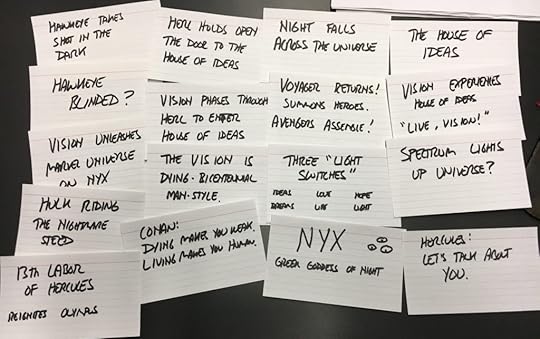 HAWKEYE TAKES
SHOT IN THE
DARK
HAWKEYE
BLINDED?
VISION UNLEASHES
MARVEL UNIVERSE
ON NYX
HULK RIDING
THE NIGHTMARE
STEED
13TH LABOR
OF HERCULES
REIGNITES OLYMPUS
HERC HOLDS OPEN
THE DOOR TO THE
HOUSE OF IDEAS
VISION PHASES THROUGH
HERC TO ENTER
HOUSE OF IDEAS
THE VISION IS
DYING - BICENTENNIAL
MAN-STYLE.
CONAN:
DYING MAKES YOU WEAK.
LIVING MAKES YOU HUMAN.
NIGHT FALLS
ACROSS THE UNIVERSE
VOYAGER RETURNS!
SUMMONS HEROES.
AVENGERS ASSEMBLE!
THREE "LIGHT
SWITCHES"
IDEAS LOVE HOPE
DREAMS LIFE LIGHT
NYX
GREEK GODDESS OF NIGHT
THE HOUSE OF
IDEAS
VISION EXPERIENCES
HOUSE OF IDEAS
"LIVE, VISION!"
SPECTRUM LIGHTS
UP UNIVERSE?
HERCULES:
LET'S TALK ABOUT
YOU.